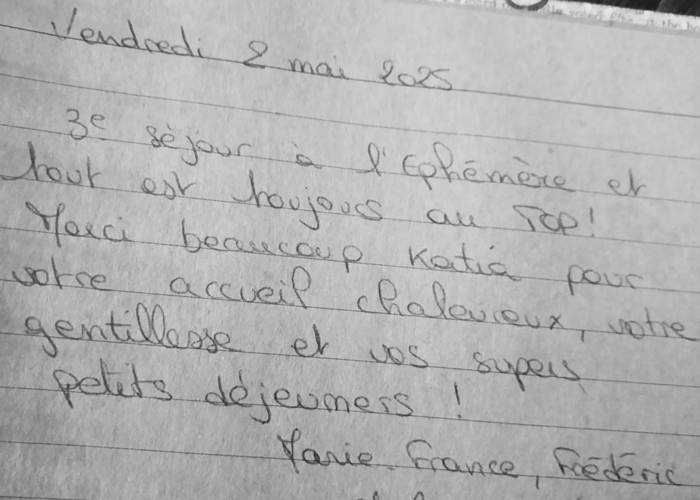 Vendredi 2 mai 2025
3e séjour à l'Ephémère et
tout est toujours au TOP !
Merci beaucoup Katia pour
votre accueil chaleureux, votre
gentillesse et vos supers
petits déjeuners !
Marie-France, Frédéric